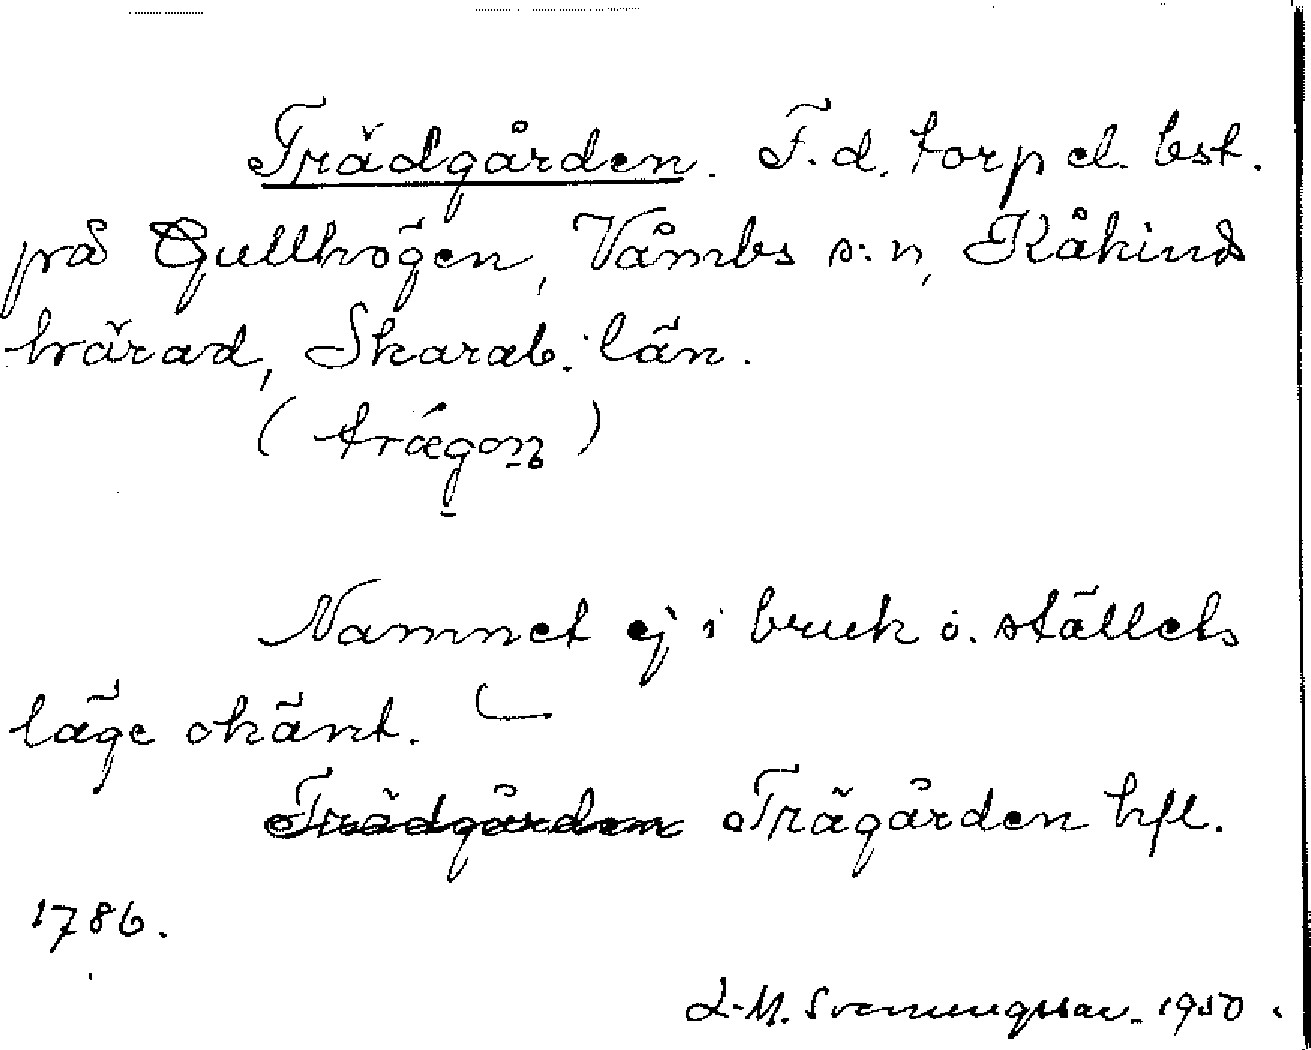 Trädgården. F.d. torp el. bst.
på Gullhögen, Våmbs s:n, Kåkinds
härad, Skarab. län.
(trǽgon̲)
Namnet ej i bruk o. ställets
läge okänt.
Trädgården Trägården hfl.
1786.
L-M. Svenungsson. 1950.